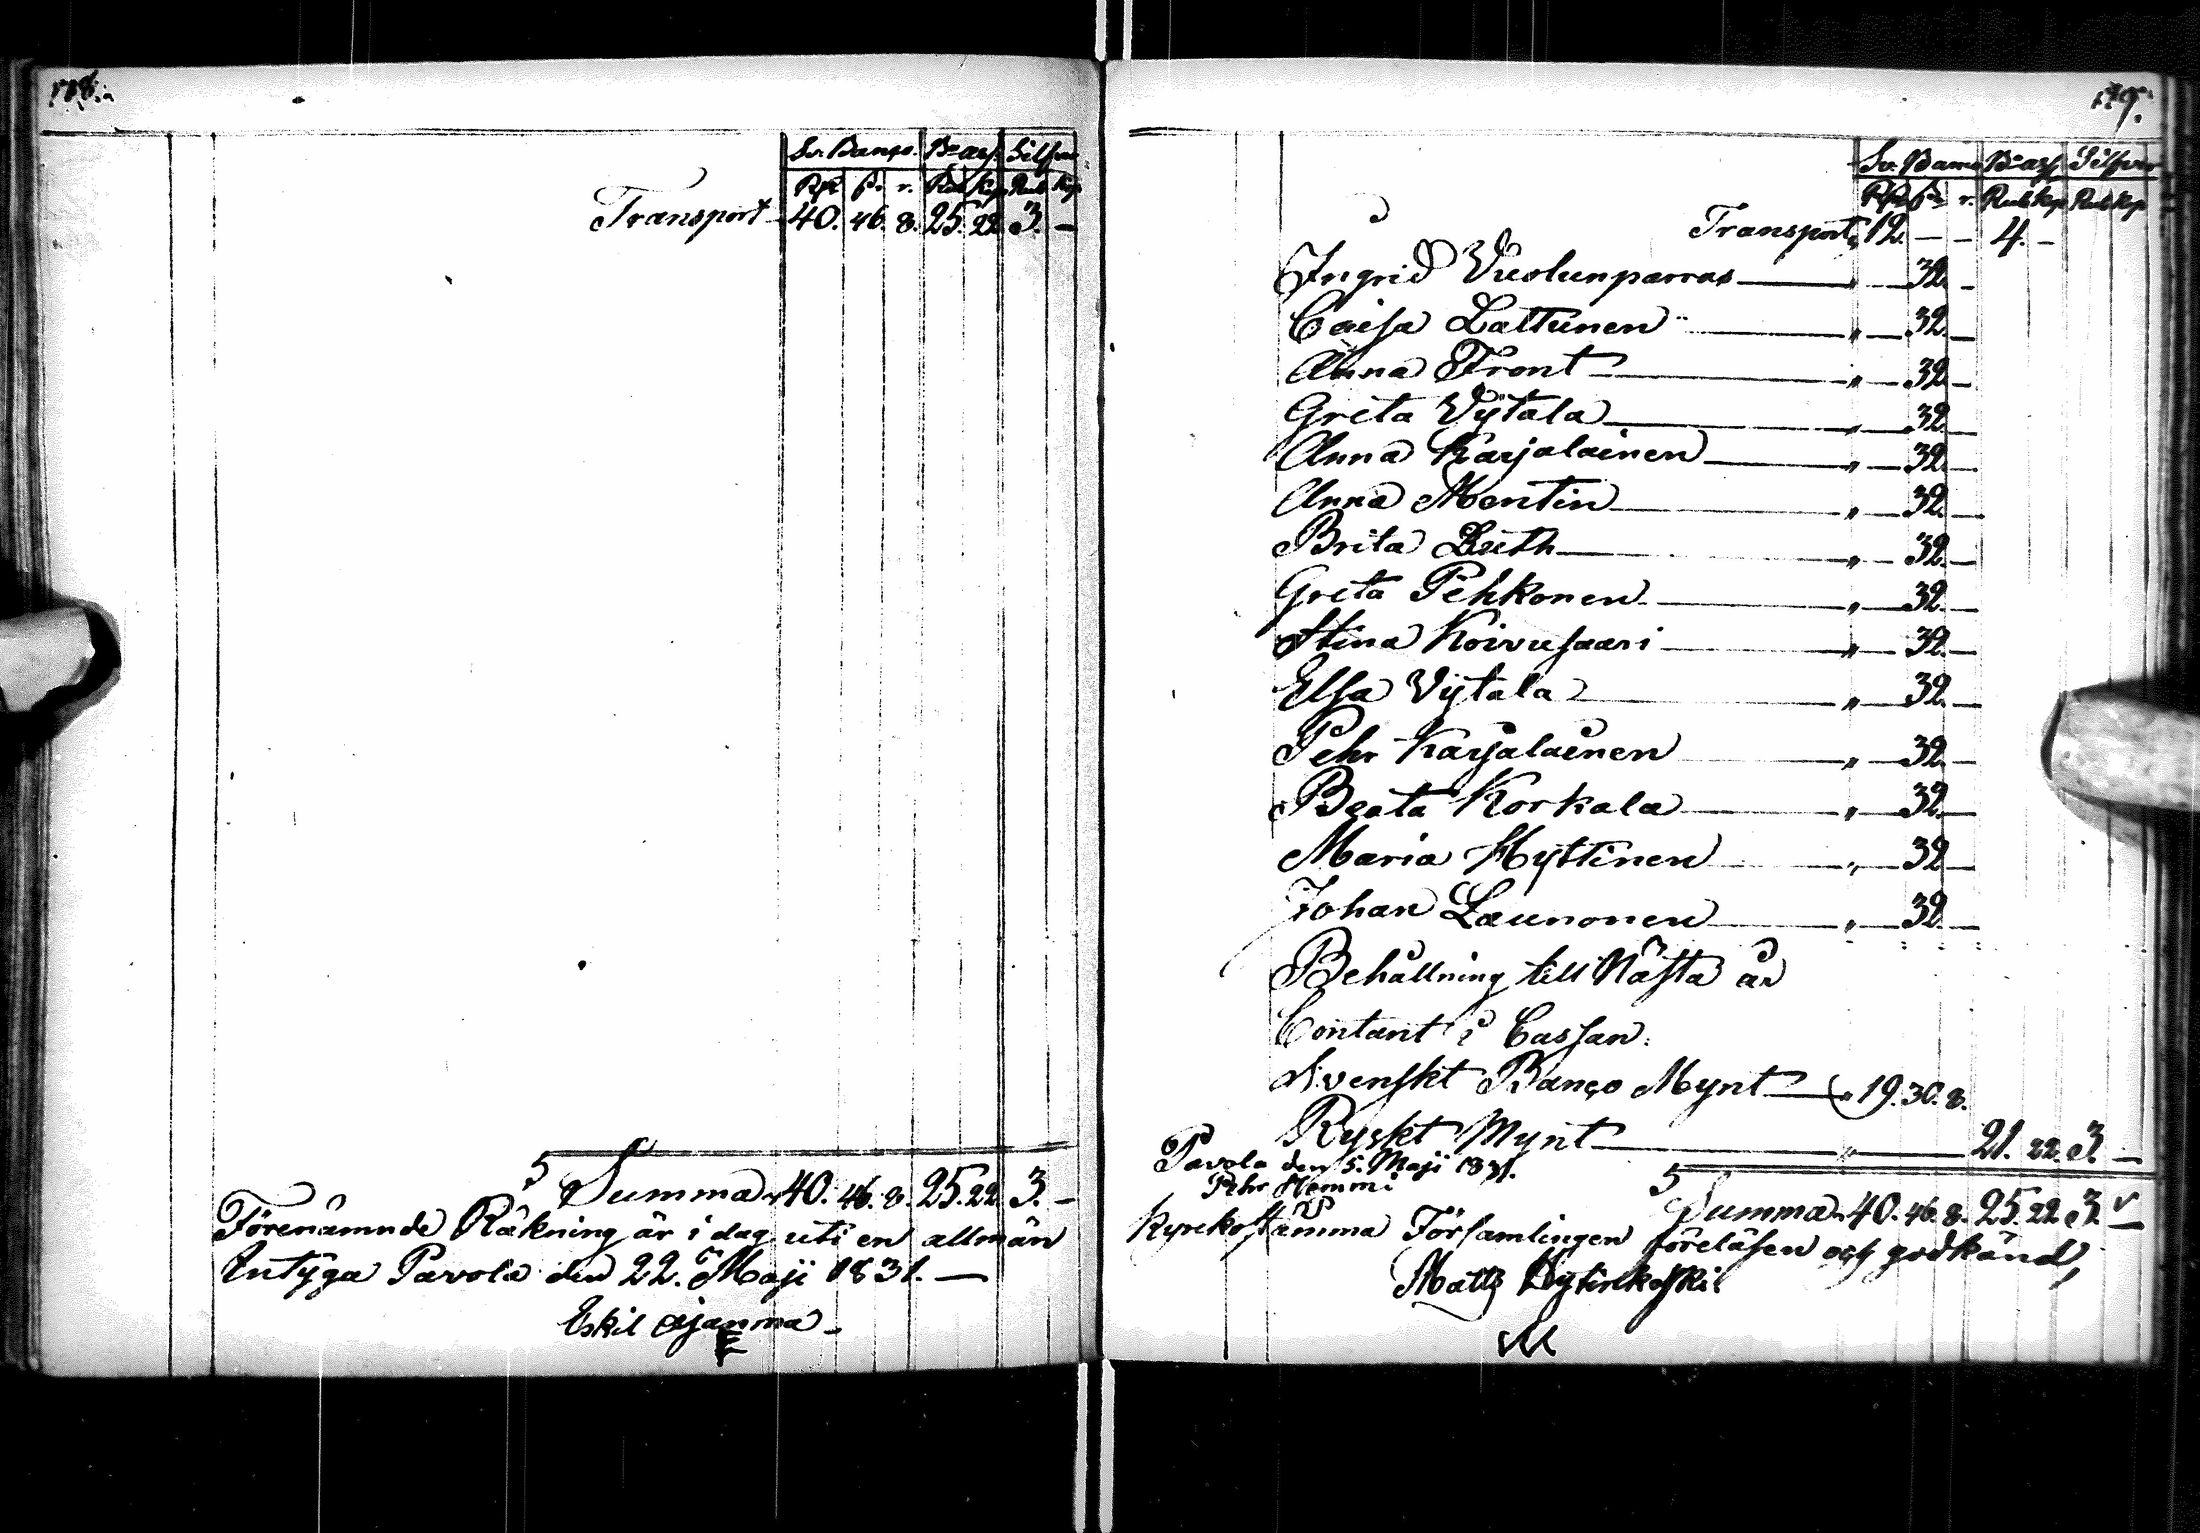 178.
Sv. Banco. Bco ass. Silfver
Rdr s. r. Rub. kop Rub kop
Transport 40. 46. 8. 25. 22. 3. —
Summa 40. 46. 8. 25. 22. 3. —
Förenämnde Räkning är i dag uti en allmän
Intyga Pavola den 22. Maji 1831. —
Eskil Ajanma
179.
Sv. Banco Bco ass Silfver
Rdr s. r. Rub kop Rub kop
Transport 12. — — 4. —
Ingrid Vuolunparras — " — 32. —
Caisa Lattunen — " — 32. —
Anna Front — " — 32. —
Greta Vÿtala — " — 32. —
Anna Karjalainen — " — 32. —
Anna Mentin — " — 32. —
Brita Luth — " — 32. —
Greta Pehkonen — " — 32. —
Stina Koivusaari — " — 32. —
Elsa Vÿtala — " — 32. —
Pehr Karjalainen — " — 32. —
Beata Korkala — " — 32. —
Maria Hyttinen — " — 32. —
Johan Launonen — " — 32. —
Behållning till Nästa år
Contant i Cassan:
Svenskt Banco Mynt — " 19. 30. 8.
Ryskt Mynt — " — 21. 22. 3. —
Pavola den 5. Maji 1831.
Pehr Hemmi
Summa 40. 46. 8. 25. 22. 3. —
Kyrckostämma Församlingen föreläsen och godkänd,
Matts
M